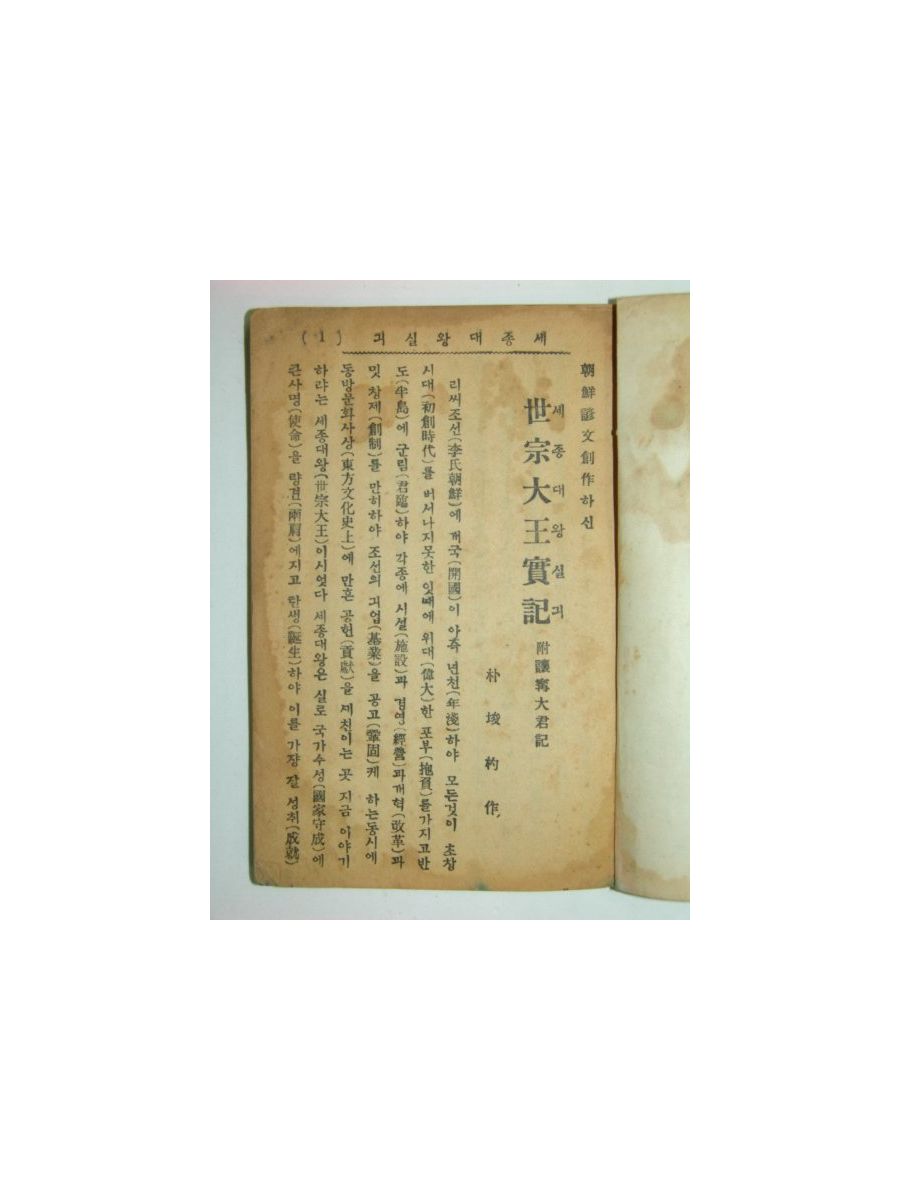 세종대왕실긔 (1)
朝鮮諺文創作하신
世宗大王實記 附讓寧大君記
세종대왕실긔
朴埈杓作
리씨조선(李氏朝鮮)에 개국(開國)이 아즉 년천(年淺)하야 모든것이 초창
시대(初創時代)를 버서나지못한 잇때에 위대(偉大)한 포부(抱負)를가지고반
도(半島)에 군림(君臨)하야 각종에 시설(施設)과 경영(經營)과개혁(改革)과
밋 창제(創制)를 만히하야 조선의 긔업(基業)을 공고(鞏固)케 하는동시에
동방문화사상(東方文化史上)에 만흔 공헌(貢献)을 세친이는 곳 지금 이야기
하랴는 세종대왕(世宗大王)이시엿다 세종대왕은 실로 국가수성(國家守成)에
큰사명(使命)을 량견(兩肩)에지고 탄생(誕生)하야 이를 가장 잘 성취(成就)